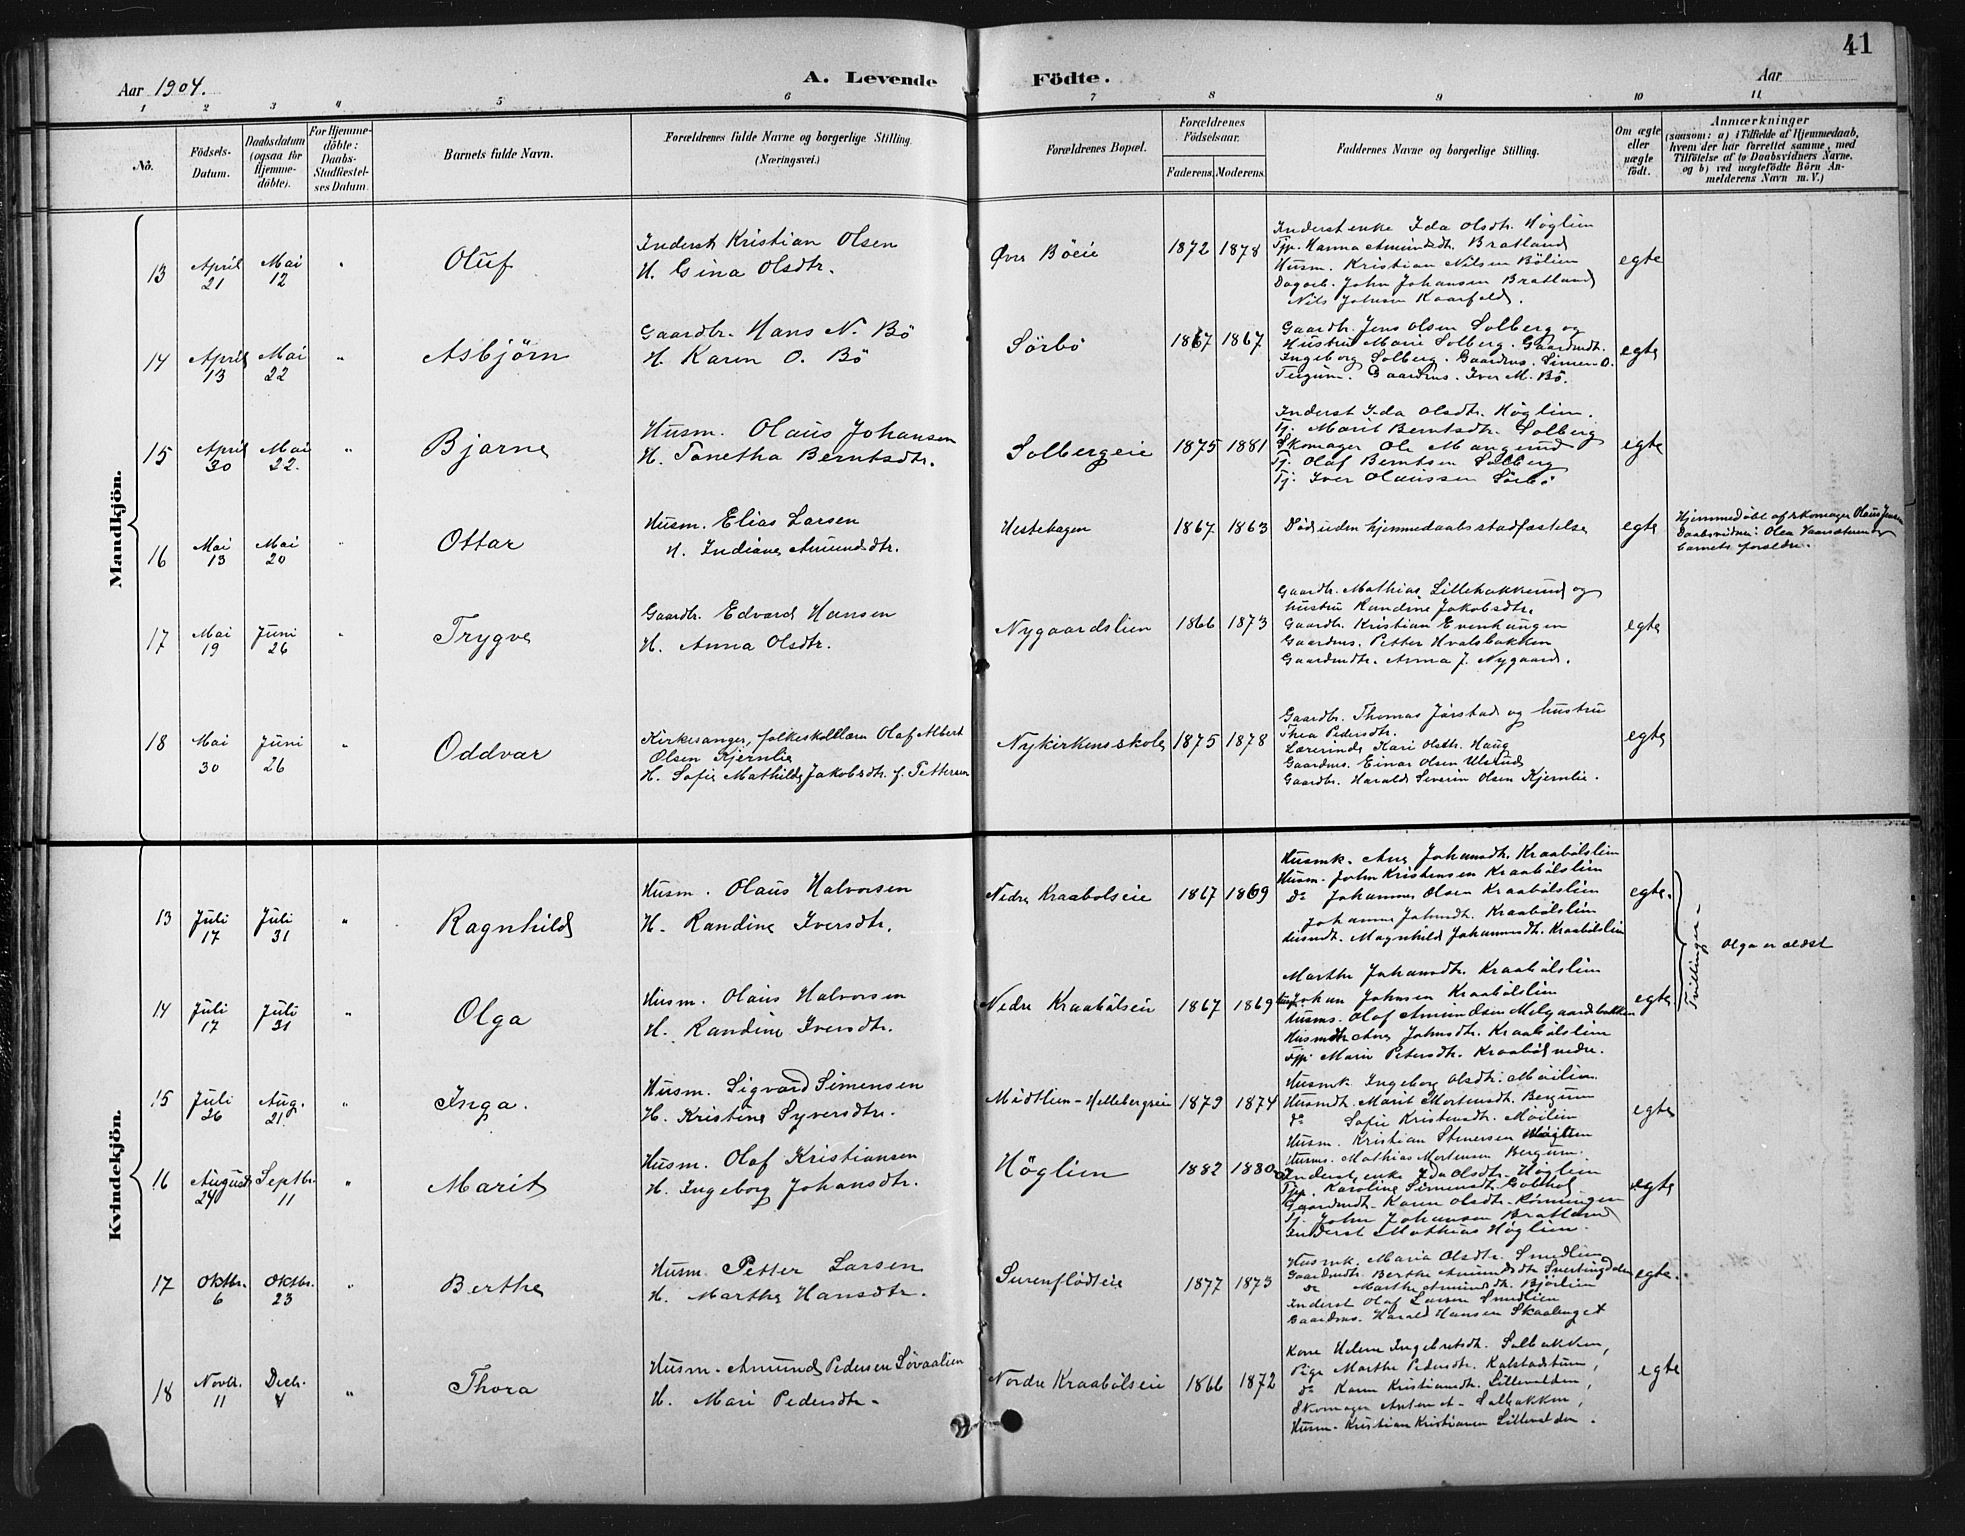 41
Aar 1904.
A. Levende Födte.
Aar
1 2 3 4 5 6 7 8 9 10 11
No.
Födsels-Datum.
Daabsdatum (ogsaa for Hjemme-döbte).
For Hjemme-döbte: Daabs-Stadfæstel-ses Datum.
Barnets fulde Navn.
Forældrenes fulde Navne og borgerlige Stilling. (Næringsvei.)
Forældrenes Bopæl.
Forældrenes Födselsaar.
Faderens.
Moderens.
Faddernes Navne og borgerlige Stilling.
Om ægte eller uægte födt.
Anmærkninger
(saasom: a) i Tilfælde af Hjemmedaab, hvem der har forrettet samme, med Tilföielse af to Daabsvidners Navne, og b) ved uægtefödte Börn Anmelderens Navn m. V.)
Mandkjön.
13 April 21 Mai 12 " Oluf
Inderst Kristian Olsen
H. Gina Olsdtr.
Øvre Böeie 1872 1878
Inderst enke Ida Olsdtr. Höglien
Tjp. Hanna Amundsdtr. Bratland
Husm. Kristian Nilsen Bölien
Dagarb. John Johansen Bratland
Nils Johnsen Kaarfald.
egte
14 April 13 Mai 22 " Asbjörn
Gaardbr. Hans N. Bö
H. Karen O. Bö
Sörbö 1867 1867
Gaardbr. Jens Olsen Solberg og
Hustru Marie Solberg. Gaardmdt.
Ingeborg Solberg. Gaardms. Simen O.
Gaardms. Iver M. Bö.
egte
15 April 30 Mai 22. " Bjarne
Husm. Olaus Johansen
H. Tonetha Berntsdtr.
Solbergeie 1875 1881
Inderst Ida Olsdtr. Höglien.
Tj. Marit Berntsdtr. Solberg
Skomager Ole Mangerud
Tj. Olaf Berntsen Solberg
Tj. Iver Olaussen Sörbö
egte
16 Mai 13 Mai 20 " Ottar
Husm. Elias Larsen
H. Indiane Amundsdtr.
Hestehagen 1867 1863
Död uden hjemmedaabsstadfæstelse
egte
Hjemmedöbt af skomager Olaus Jensen
Daabsvidner: Olea
barnets forældre.
17 Mai 19 Juni 26 " Trygve
Gaardbr. Edvard Hansen
H. Anna Olsdtr.
Nygaardslien 1866 1873
Gaardbr. Mathias Lillehakkerud og
hustru Randine Jakobsdtr.
Gaardbr. Kristian Evenhaugen
Gaardms. Petter Hvalsbakken
Gaardmdtr. Anna J. Nygaard.
egte
18 Mai 30 Juni 26 " Oddvar
Kirkesanger, folkeskollærer Olaf Albert
Olsen Kjernlie
H. Sofie Mathilde Jakobsdtr. f. Pettersen
Nykirkens skole 1875 1878
Gaardbr. Thomas Jörstad og hustru
Thea Pedersdtr.
Lærerinde Kari Olsdtr. Haug
Gaardms. Einar Olsen Ulstad
Gaardbr. Harald Severin Olsen Kjernlie.
egte
Kvindekjön.
13 Juli 17 Juli 31 " Ragnhild
Husm. Olaus Halvorsen
H. Randine Iversdtr.
Nedre Kraabölseie 1867 1869
Husmk. Ane Johansdtr. Kraabölslien
Husm. John Kristensen Kraabölslien
Do Johannes Olsen Kraabölslien
Johanne Johnsdtr. Kraabölslien
Husmdt. Magnhild Johannesdtr. Kraabölslien
egte.
Tvillinger
Olga er ældst
14 Juli 17 Juli 31 " Olga
Husm. Olaus Halvorsen
H. Randine Iversdtr.
Nedre Kraabölseie 1867 1869
Marthe Johansdtr. Kraabölslien
Johan Johnsen Kraabölslien
Husms. Olaf Amundsen Melgaardsbakken
Husmdtr Ane Johnsdtr. Kraabölslien
Tjp. Marie Petersdtr. Kraaböl nedre.
egte
15 Juli 26 Aug. 21. " Inga.
Husm. Sigvard Simensen
H. Kristine Syversdtr.
Midtlien-Hellebergseie 1879 1874
Husmk. Ingeborg Olsdtr. Möilien
Husmdt. Marit Mortensdtr. Bergum
do Sofie Kristensdtr. Möilien
Husm. Kristian Stenersen
Husms. Mathias Mortensen Bergum.
egte
16 August 24 Septbr. 11 " Marit
Husm. Olaf Kristiansen
H. Ingeborg Johansdtr.
Höglien 1882 1880
Inderst enke Ida Olsdtr. Höglien
Tjp. Karoline Simensdtr. Gotthol
Gaardmdt. Karen Olsdtr. Rönningen
Tj. John Johansen Bratland
Inderst Mathias Höglien.
egte
17 Oktbr. 6 Oktbr. 23 " Berthe
Husm. Petter Larsen
H. Marthe Hansdtr.
Surenflödteie 1877 1873
Husmk. Maria Olsdtr. Smedlien
Gaardmdt. Berthe Amundsdtr Svertingdalen
Do Marthe Amundsdtr. Björlien
Inderst Olaf Larsen Smedlien
Gaardms. Harald Hansen Skaalenget
egte.
18 Novbr. 11 Decbr. 4 " Thora
Husm. Amund Pedersen Sövaalien
H. Mari Pedersdtr.
Nordre Kraabölseie 1866 1872
Kone Helene Ingebretsdtr. Solbakken,
Pige Marthe Pedersdtr. Kalstadstuen,
do Karen Kristiansdtr. Lillevolden,
Skomager Anten A. Solbakken,
Husm. Kristian Kristiansen Lillevolden.
egte